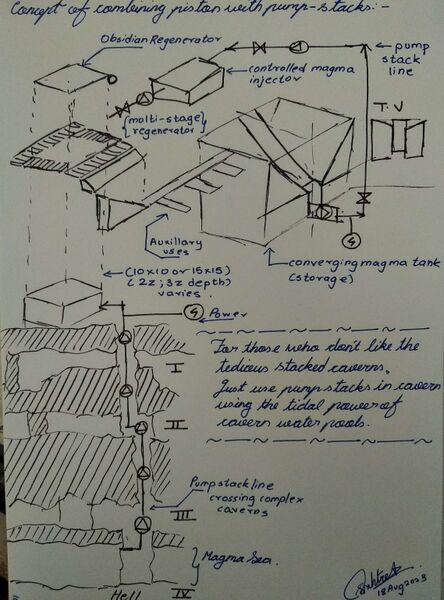 Concept of combining piston with pump-stacks:-
Obsidian Regenerator
pump
stack
line
controlled magma
injector
(molti-stage
regenerator)
T.V
Auxillary
uses
converging magma tank
(storage)
(10x10 or 15x15)
(2z; 3z depth)
varies.
Power
For those who don't like the
tedious stacked caverns,
Just use pump stacks in cavern
using the tidal power of
cavern water pools.
I
II
Pump stack line
crossing complex
caverns
III
Magma Sea.
Hell
IV
18Aug2023